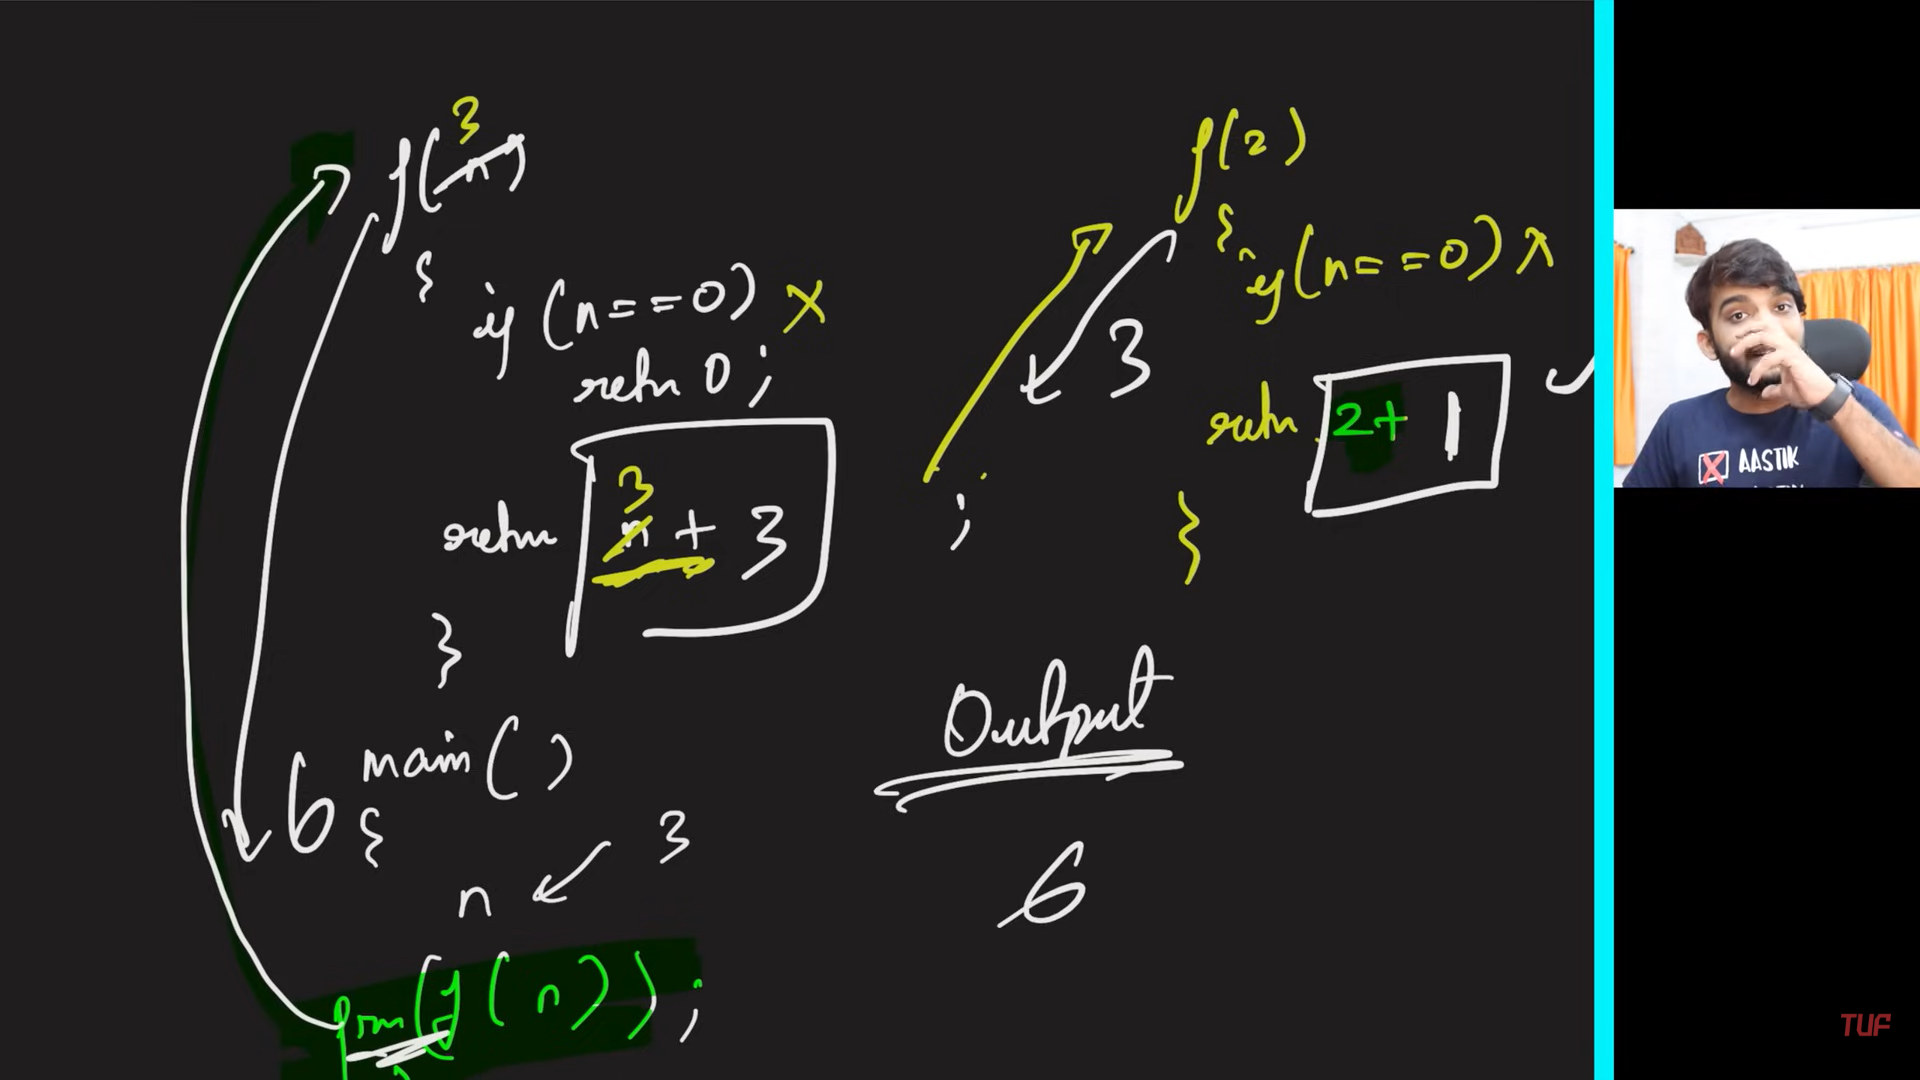 3
f(n)
{
if (n==0) x
retn 0;
3
retn n + 3
}
main()
6 {
n 3
prin(f(n));
f(2)
{
if(n==0) x
3
retn 2+ 1
;
}
Output
6
AASTIK
TUF